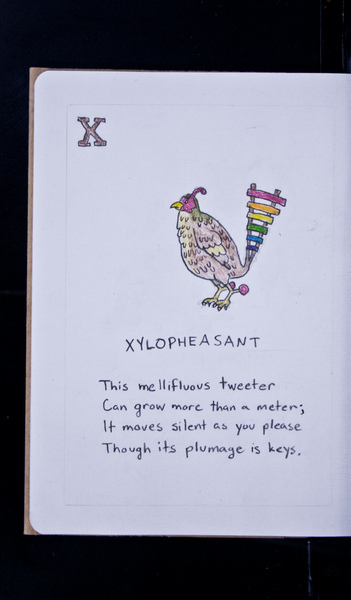 X
XYLOPHEASANT
This mellifluous tweeter
Can grow more than a meter;
It moves silent as you please
Though its plumage is keys.